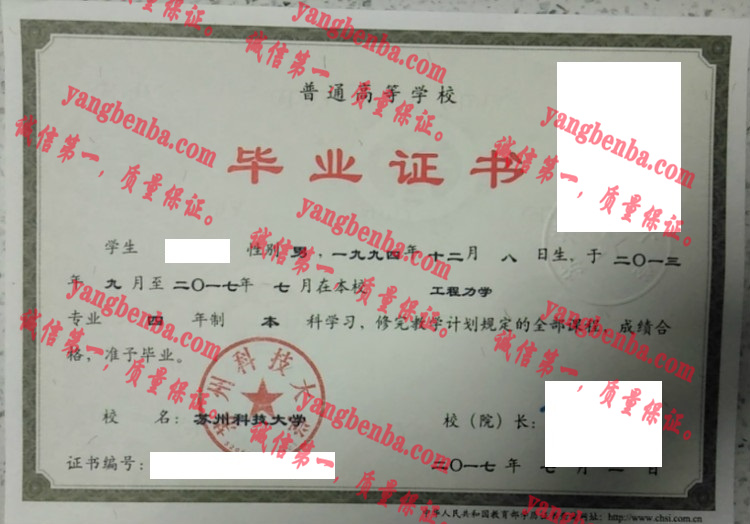 普通高等学校
毕业证书
学生 性别 男 ,一九九四年 十二月 八 日生,于 二〇一三
年 九 月至 二〇一七年 七 月在本校 工程力学
专业 四 年制 本 科学习,修完教学计划规定的全部课程,成绩合
格,准予毕业。
校 名: 苏州科技大学 校(院)长:
证书编号: 二〇一七 年 七 月 日
http://www.chsi.com.cn
yangbenba.com
诚信第一,质量保证。
yangbenba.com
诚信第一,质量保证。
yangbenba.com
诚信第一,质量保证。
yangbenba.com
诚信第一,质量保证。
yangbenba.com
诚信第一,质量保证。
yangbenba.com
诚信第一,质量保证。
yangbenba.com
诚信第一,质量保证。
yangbenba.com
诚信第一,质量保证。
yangbenba.com
诚信第一,质量保证。